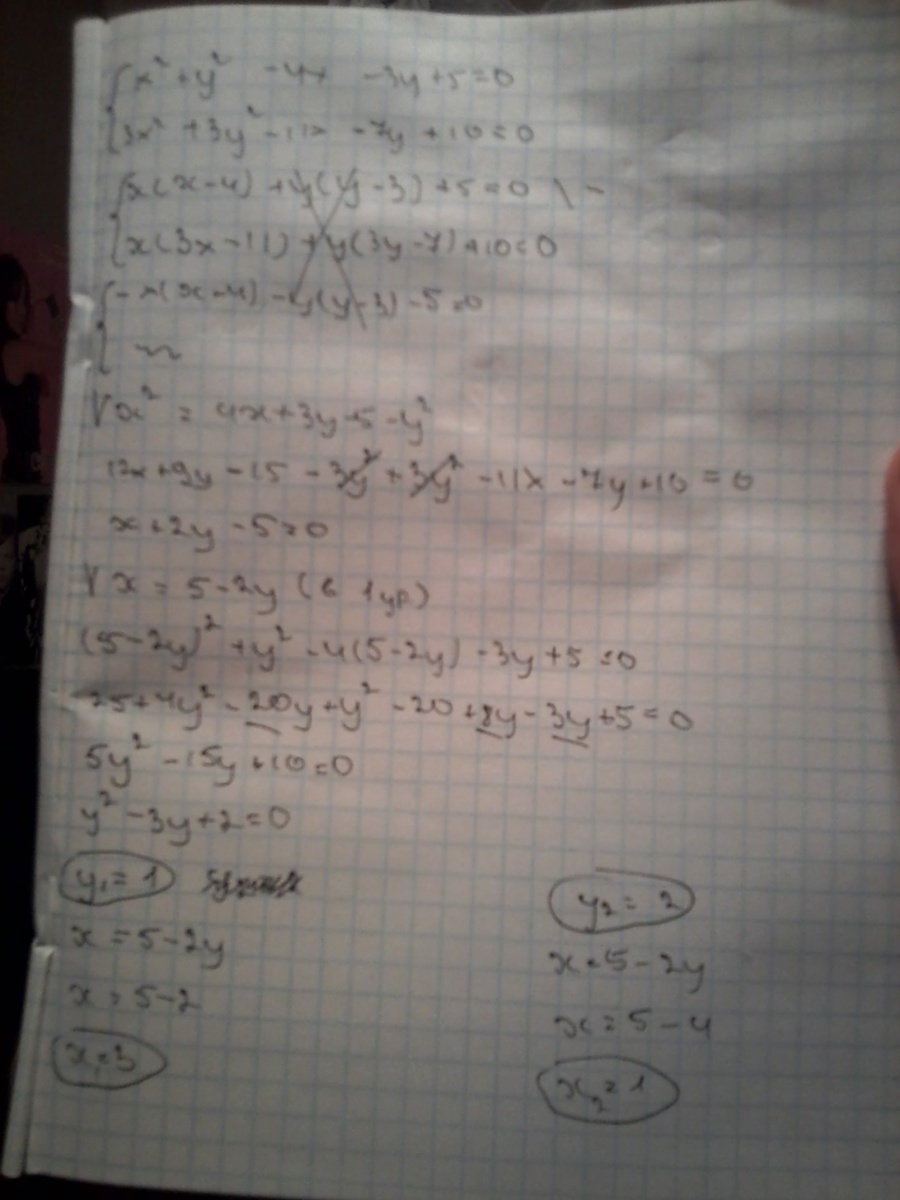 x² + y² - 4x - 3y + 5 = 0
3x² + 3y² - 11x - 7y + 10 = 0
x(x-4) + y(y-3) + 5 = 0 \ -
x(3x-11) + y(3y-7) + 10 = 0
-x(x-4) - y(y-3) - 5 = 0
~
V x² = 4x + 3y - 5 - y²
12x + 9y - 15 - 3y² + 3y² - 11x - 7y + 10 = 0
x + 2y - 5 = 0
V x = 5 - 2y (в 1 ур)
(5-2y)² + y² - 4(5-2y) - 3y + 5 = 0
25 + 4y² - 20y + y² - 20 + 8y - 3y + 5 = 0
5y² - 15y + 10 = 0
y² - 3y + 2 = 0
y₁ = 1
x = 5 - 2y
x = 5 - 2
x₁ = 3
y₂ = 2
x = 5 - 2y
x = 5 - 4
x₂ = 1